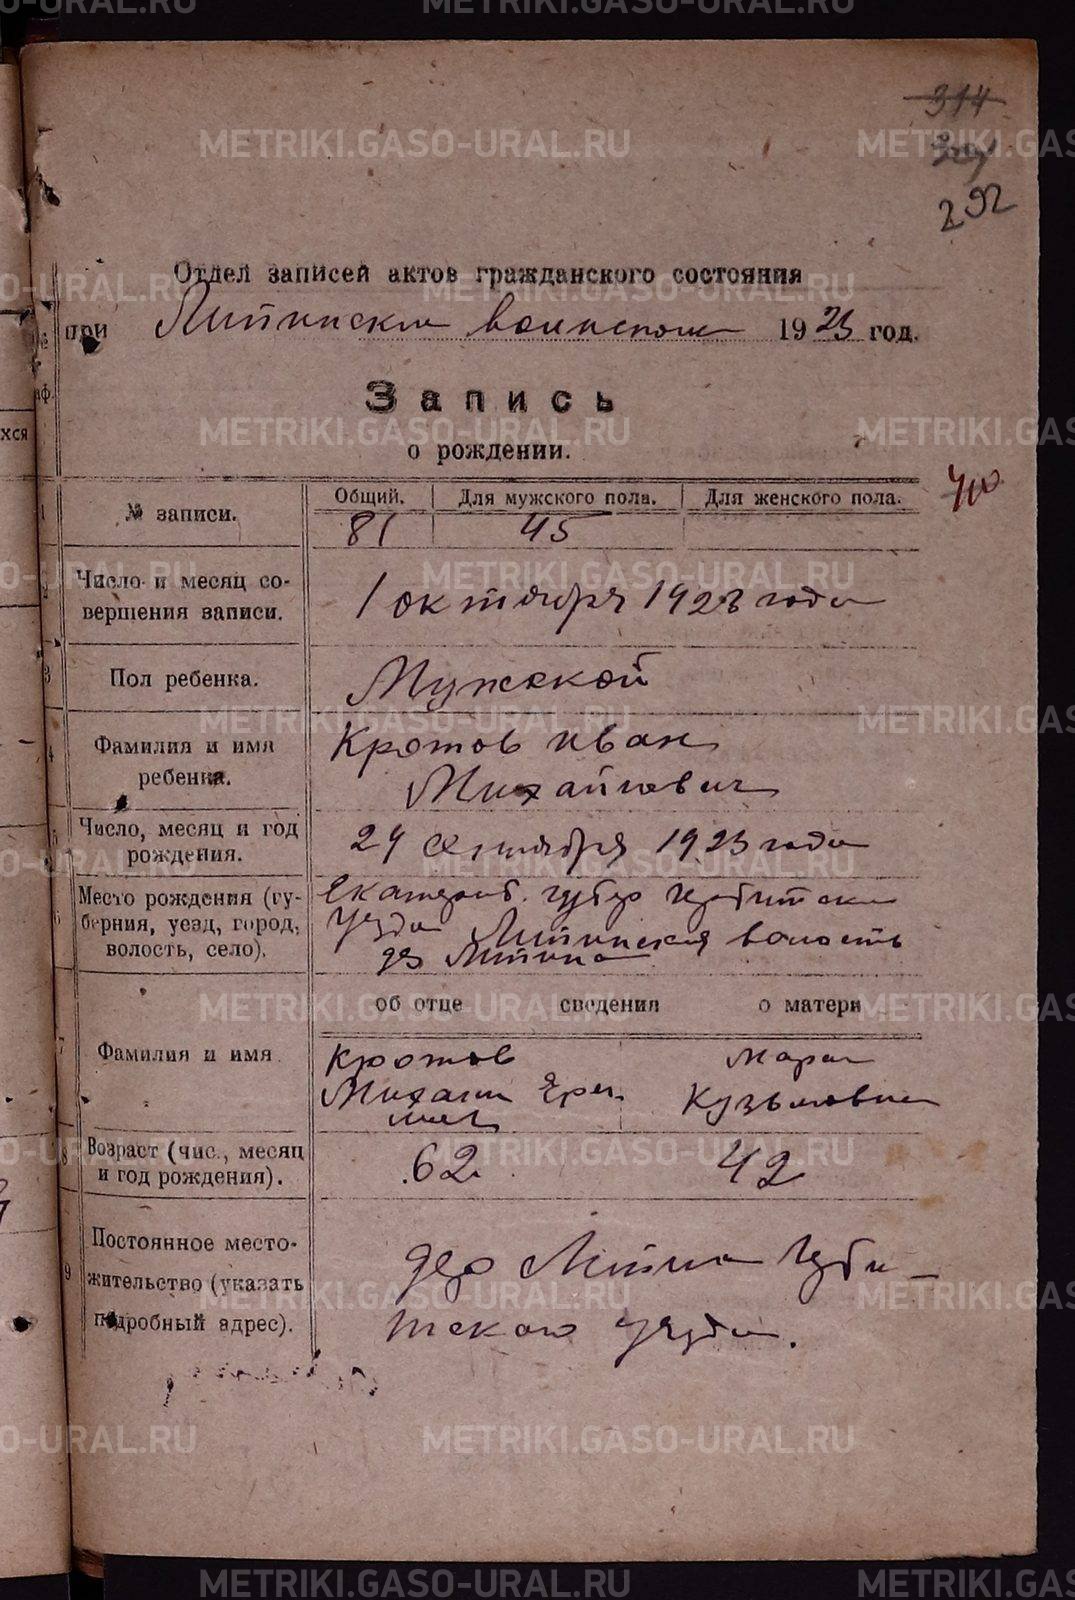 METRIKI.GASO-URAL.RU
314
292
Отдел записей актов гражданского состояния
при 1923 год.
Запись
о рождении.
Общий. Для мужского пола. Для женского пола.
№ записи. 81 45
Число и месяц со-
вершения записи. 1 октября 1923 года
Пол ребенка. Мужской
Фамилия и имя Кротов Иван
ребенка. Михайлович
Число, месяц и год
рождения. 24 сентября 1923 года
Место рождения (гу- Екатеринб. губер Ирбитском
берния, уезд, город, уезда волость
волость, село). дер
об отце сведения о матери
Фамилия и имя Кротов Мария
Михаил Кузьмовна
Возраст (чис., месяц 62 42
и год рождения).
Постоянное место- дер Ирби-
жительство (указать
подробный адрес). тского уезда.